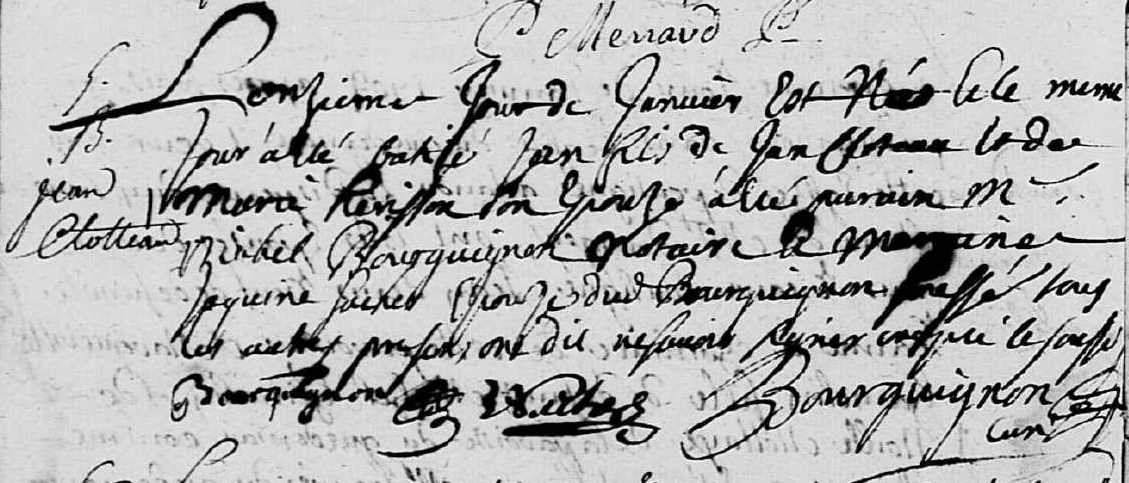 P Menard Pr
B.
Jean
Clotteau
L'onzieme Jour de Janvier Est Née Et le meme
Jour a esté batisé Jan fils de Jan Cloteau Et de
Marie herisson son Epouze a esté parain Mr
Michel Bourguignon Notaire Et Maraine
Epouze dud Bourguignon tous
les autres ont dit ne savoir signer le soussi
Bourguignon Bourguignon
curé